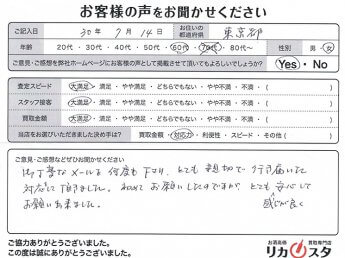 お客様の声をお聞かせください
ご記入日 30年 7月 14日 お住いの都道府県 東京都
年齢 20代・30代・40代・50代・60代・70代・80代～ 性別 男・女
ご意見・ご感想を弊社ホームページにお客様の声として掲載させて頂いてもよろしいでしょうか？ Yes・No
査定スピード 大満足・満足・やや満足・どちらでもない・やや不満・不満・( )
スタッフ接客 大満足・満足・やや満足・どちらでもない・やや不満・不満・( )
買取金額 大満足・満足・やや満足・どちらでもない・やや不満・不満・( )
当店をお選びいただきました決め手は？ 買取金額・対応力・利便性・スピード・その他( )
ご意見・ご感想などぜひお聞かせください
御丁寧なメールを何度も下さり、とても親切で行き届いた
対応に頂きました。初めてお願いしたのですが、とても安心して
お願い出来ました。 感じが良く
ご協力ありがとうございました。
この度は誠にありがとうございました。
お酒高価 買取専門店
リカスタ